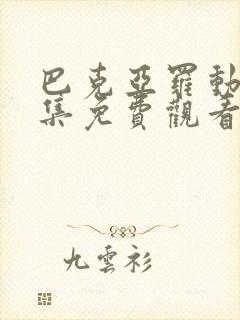 巴克亚羅動
集免費觀看
九雲衫